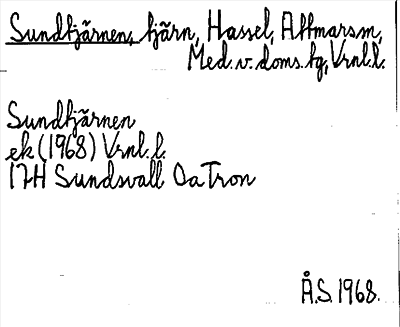 Sundtjärnen, tjärn, Hassel, Attmarsm,
Med. v. doms. tg, Vrnl. l.
Sundtjärnen
ek (1968) Vrnl. l.
17H Sundsvall Oa Tron
Å.S. 1968.